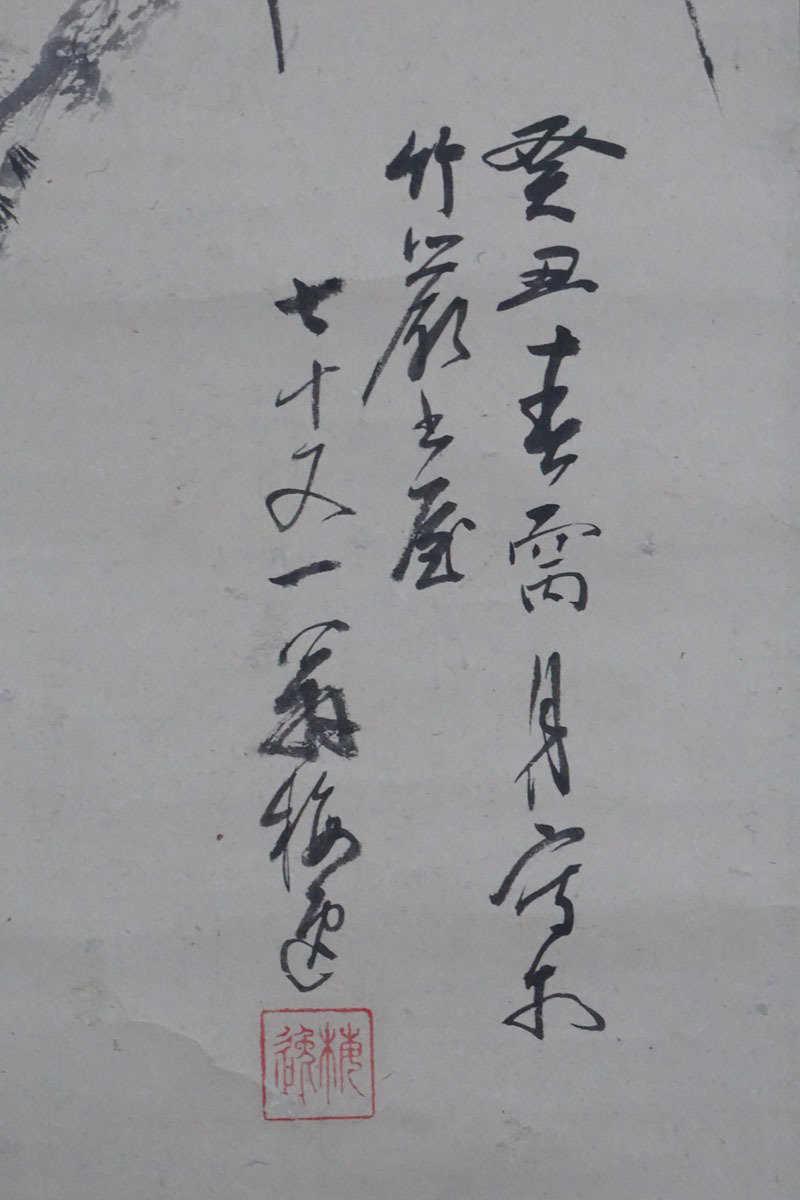 癸丑春雩月寫於
竹巖書屋
七十又一翁梅逸
梅逸